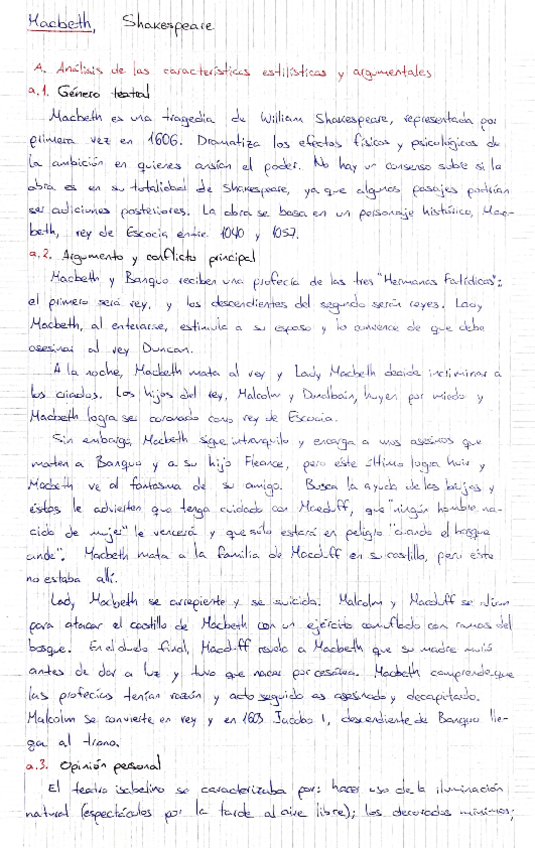 Macbeth, Shakespeare
A. Análisis de las características estilísticas y argumentales
a.1. Género teatral
Macbeth es una tragedia de William Shakespeare, representada por
primera vez en 1606. Dramatiza los efectos físicos y psicológicos de
la ambición en quienes ansían el poder. No hay un consenso sobre si la
obra es en su totalidad de Shakespeare, ya que algunos pasajes podrían
ser adiciones posteriores. La obra se basa en un personaje histórico, Mac-
beth, rey de Escocia entre 1040 y 1057.
a.2. Argumento y conflicto principal
Macbeth y Banquo reciben una profecía de las tres "Hermanas Fatídicas":
el primero será rey, y los descendientes del segundo serán reyes. Lady
Macbeth, al enterarse, estimula a su esposo y lo convence de que debe
asesinar al rey Duncan.
A la noche, Macbeth mata al rey y Lady Macbeth decide incriminar a
los criados. Los hijos del rey, Malcolm y Donalbain, huyen por miedo y
Macbeth logra ser coronado como rey de Escocia.
Sin embargo, Macbeth sigue intranquilo y encarga a unos asesinos que
maten a Banquo y a su hijo Fleance, pero éste último logra huir y
Macbeth ve al fantasma de su amigo. Busca la ayuda de las brujas y
éstas le advierten que tenga cuidado con Macduff, que "ningún hombre na-
cido de mujer" le vencerá y que sólo estará en peligro "cuando el bosque
ande". Macbeth mata a la familia de Macduff en su castillo, pero éste
no estaba allí.
Lady Macbeth se arrepiente y se suicida. Malcolm y Macduff se alían
para atacar el castillo de Macbeth con un ejército camuflado con ramas del
bosque. En el duelo final, Macduff revela a Macbeth que su madre murió
antes de dar a luz y tuvo que nacer por cesárea. Macbeth comprende que
las profecías tenían razón y acto seguido es asesinado y decapitado.
Malcolm se convierte en rey y en 1603 Jacobo I, descendiente de Banquo lle-
ga al trono.
a.3. Opinión personal
El teatro isabelino se caracterizaba por: hacer uso de la iluminación
natural (espectáculos por la tarde al aire libre); los decorados mínimos;